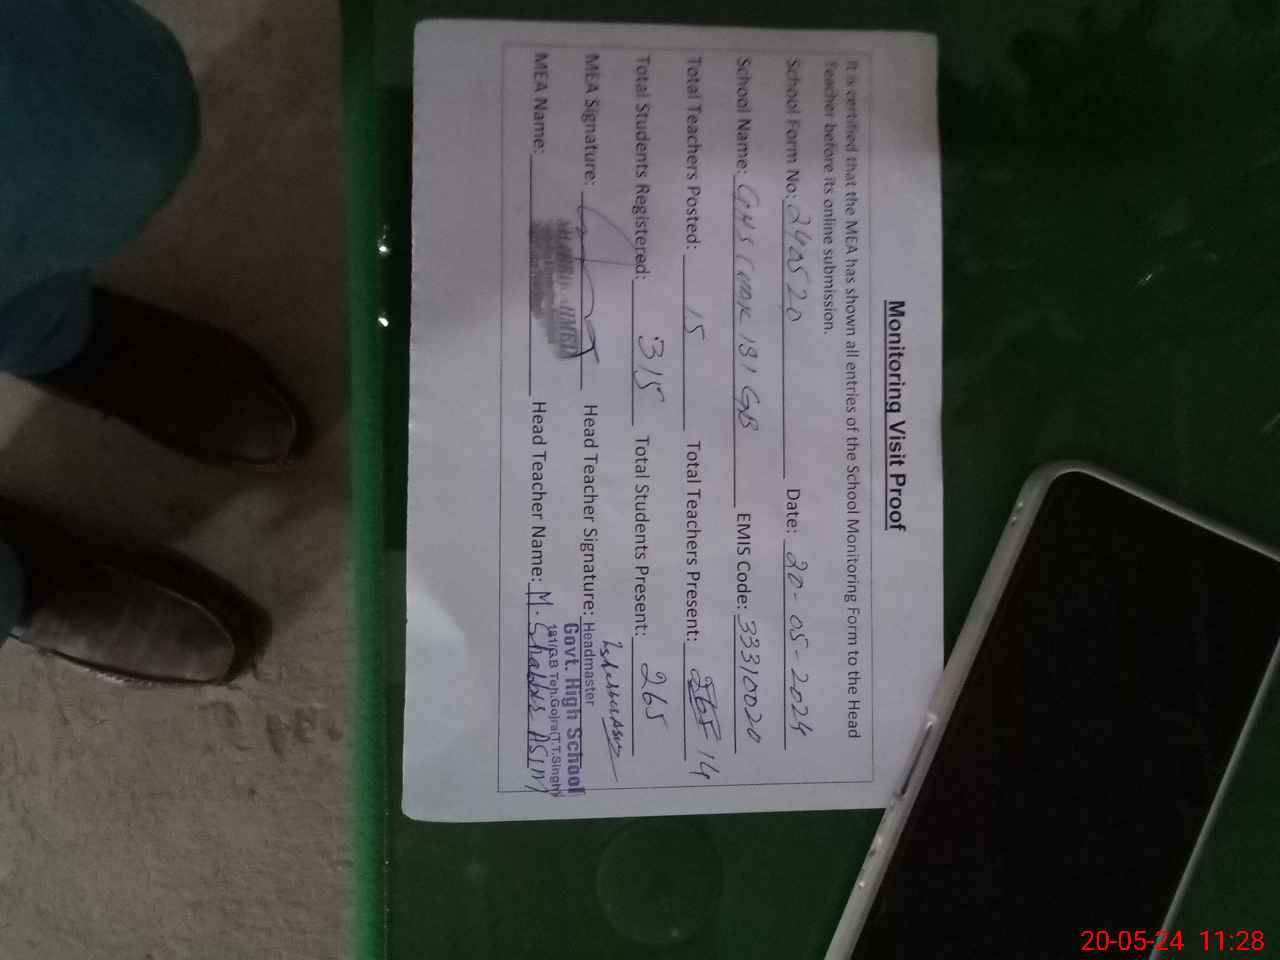 Monitoring Visit Proof
It is certified that the MEA has shown all entries of the School Monitoring Form to the Head
Teacher before its online submission.
School Form No: 240520 Date: 20-05-2024
School Name: GHS 181 GB EMIS Code: 33310020
Total Teachers Posted: 15 Total Teachers Present: 265 14
Total Students Registered: 315 Total Students Present: 265
MEA Signature: Head Teacher Signature:
Headmaster
Govt. High School
181/GB Teh.Gojra(T.T.Singh)
MEA Name: Head Teacher Name: M. Shabbir ASIM
20-05-24 11:28